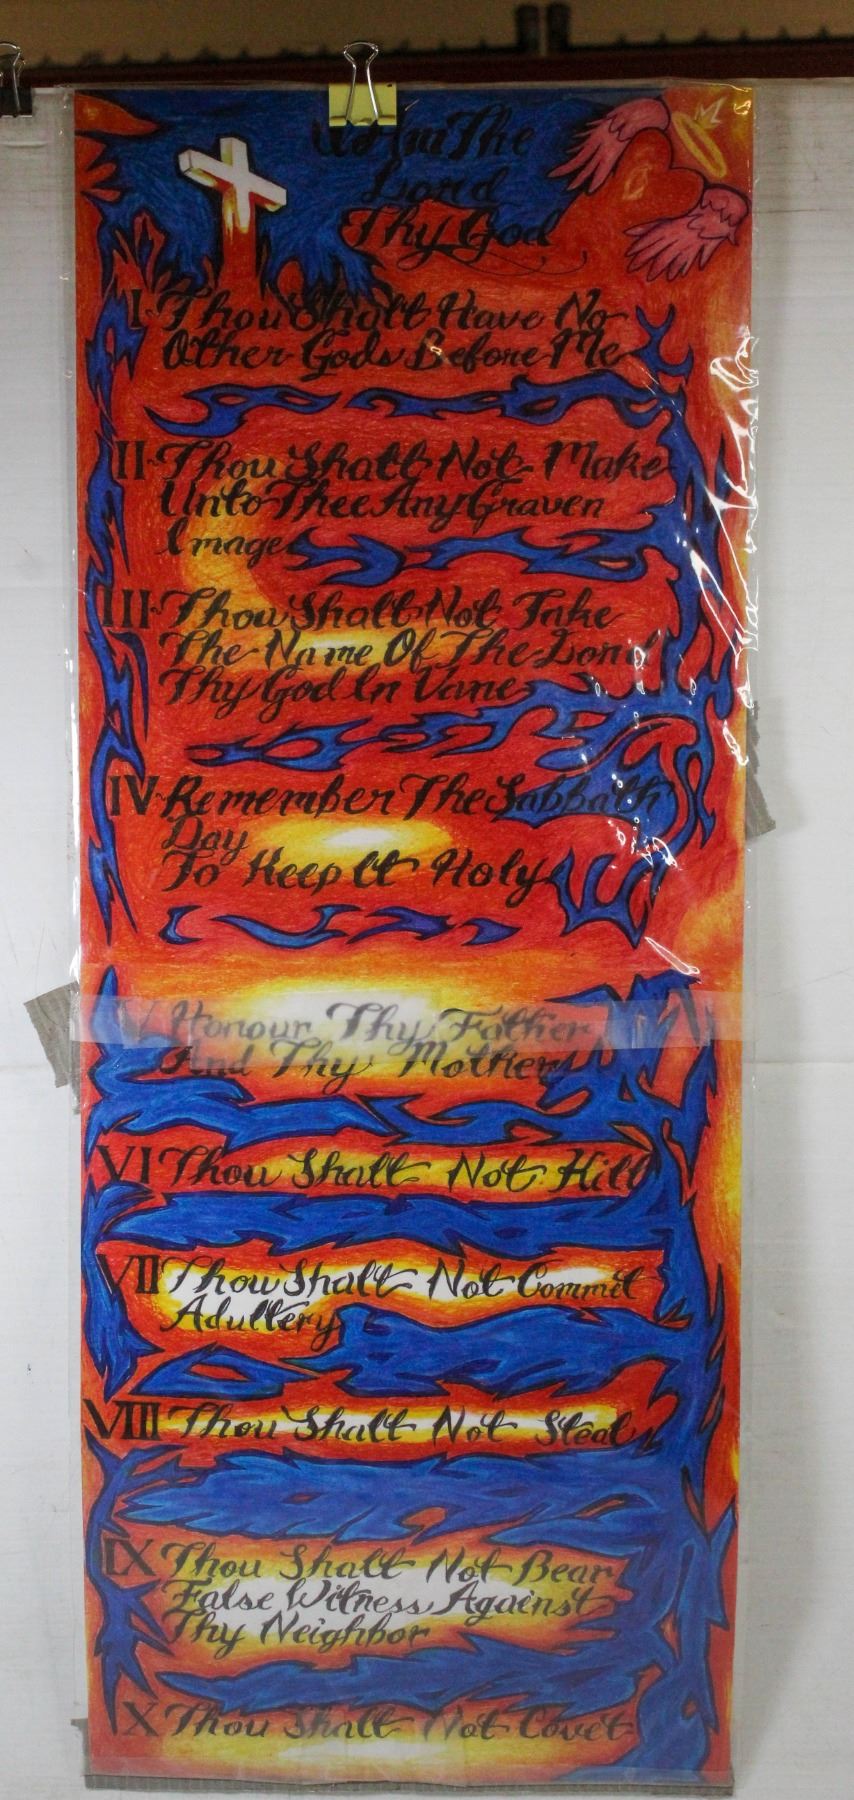 I Am The
Lord
Thy God
I Thou Shalt Have No
Other Gods Before Me
II Thou Shalt Not Make
Unto Thee Any Graven
Image
III Thou Shalt Not Take
The Name Of The Lord
Thy God In Vane
IV Remember The Sabbath
Day
To Keep It Holy
V Honour Thy Father
And Thy Mother
VI Thou Shalt Not Kill
VII Thou Shalt Not Commit
Adultery
VIII Thou Shalt Not Steal
IX Thou Shalt Not Bear
False Witness Against
Thy Neighbor
X Thou Shalt Not Covet